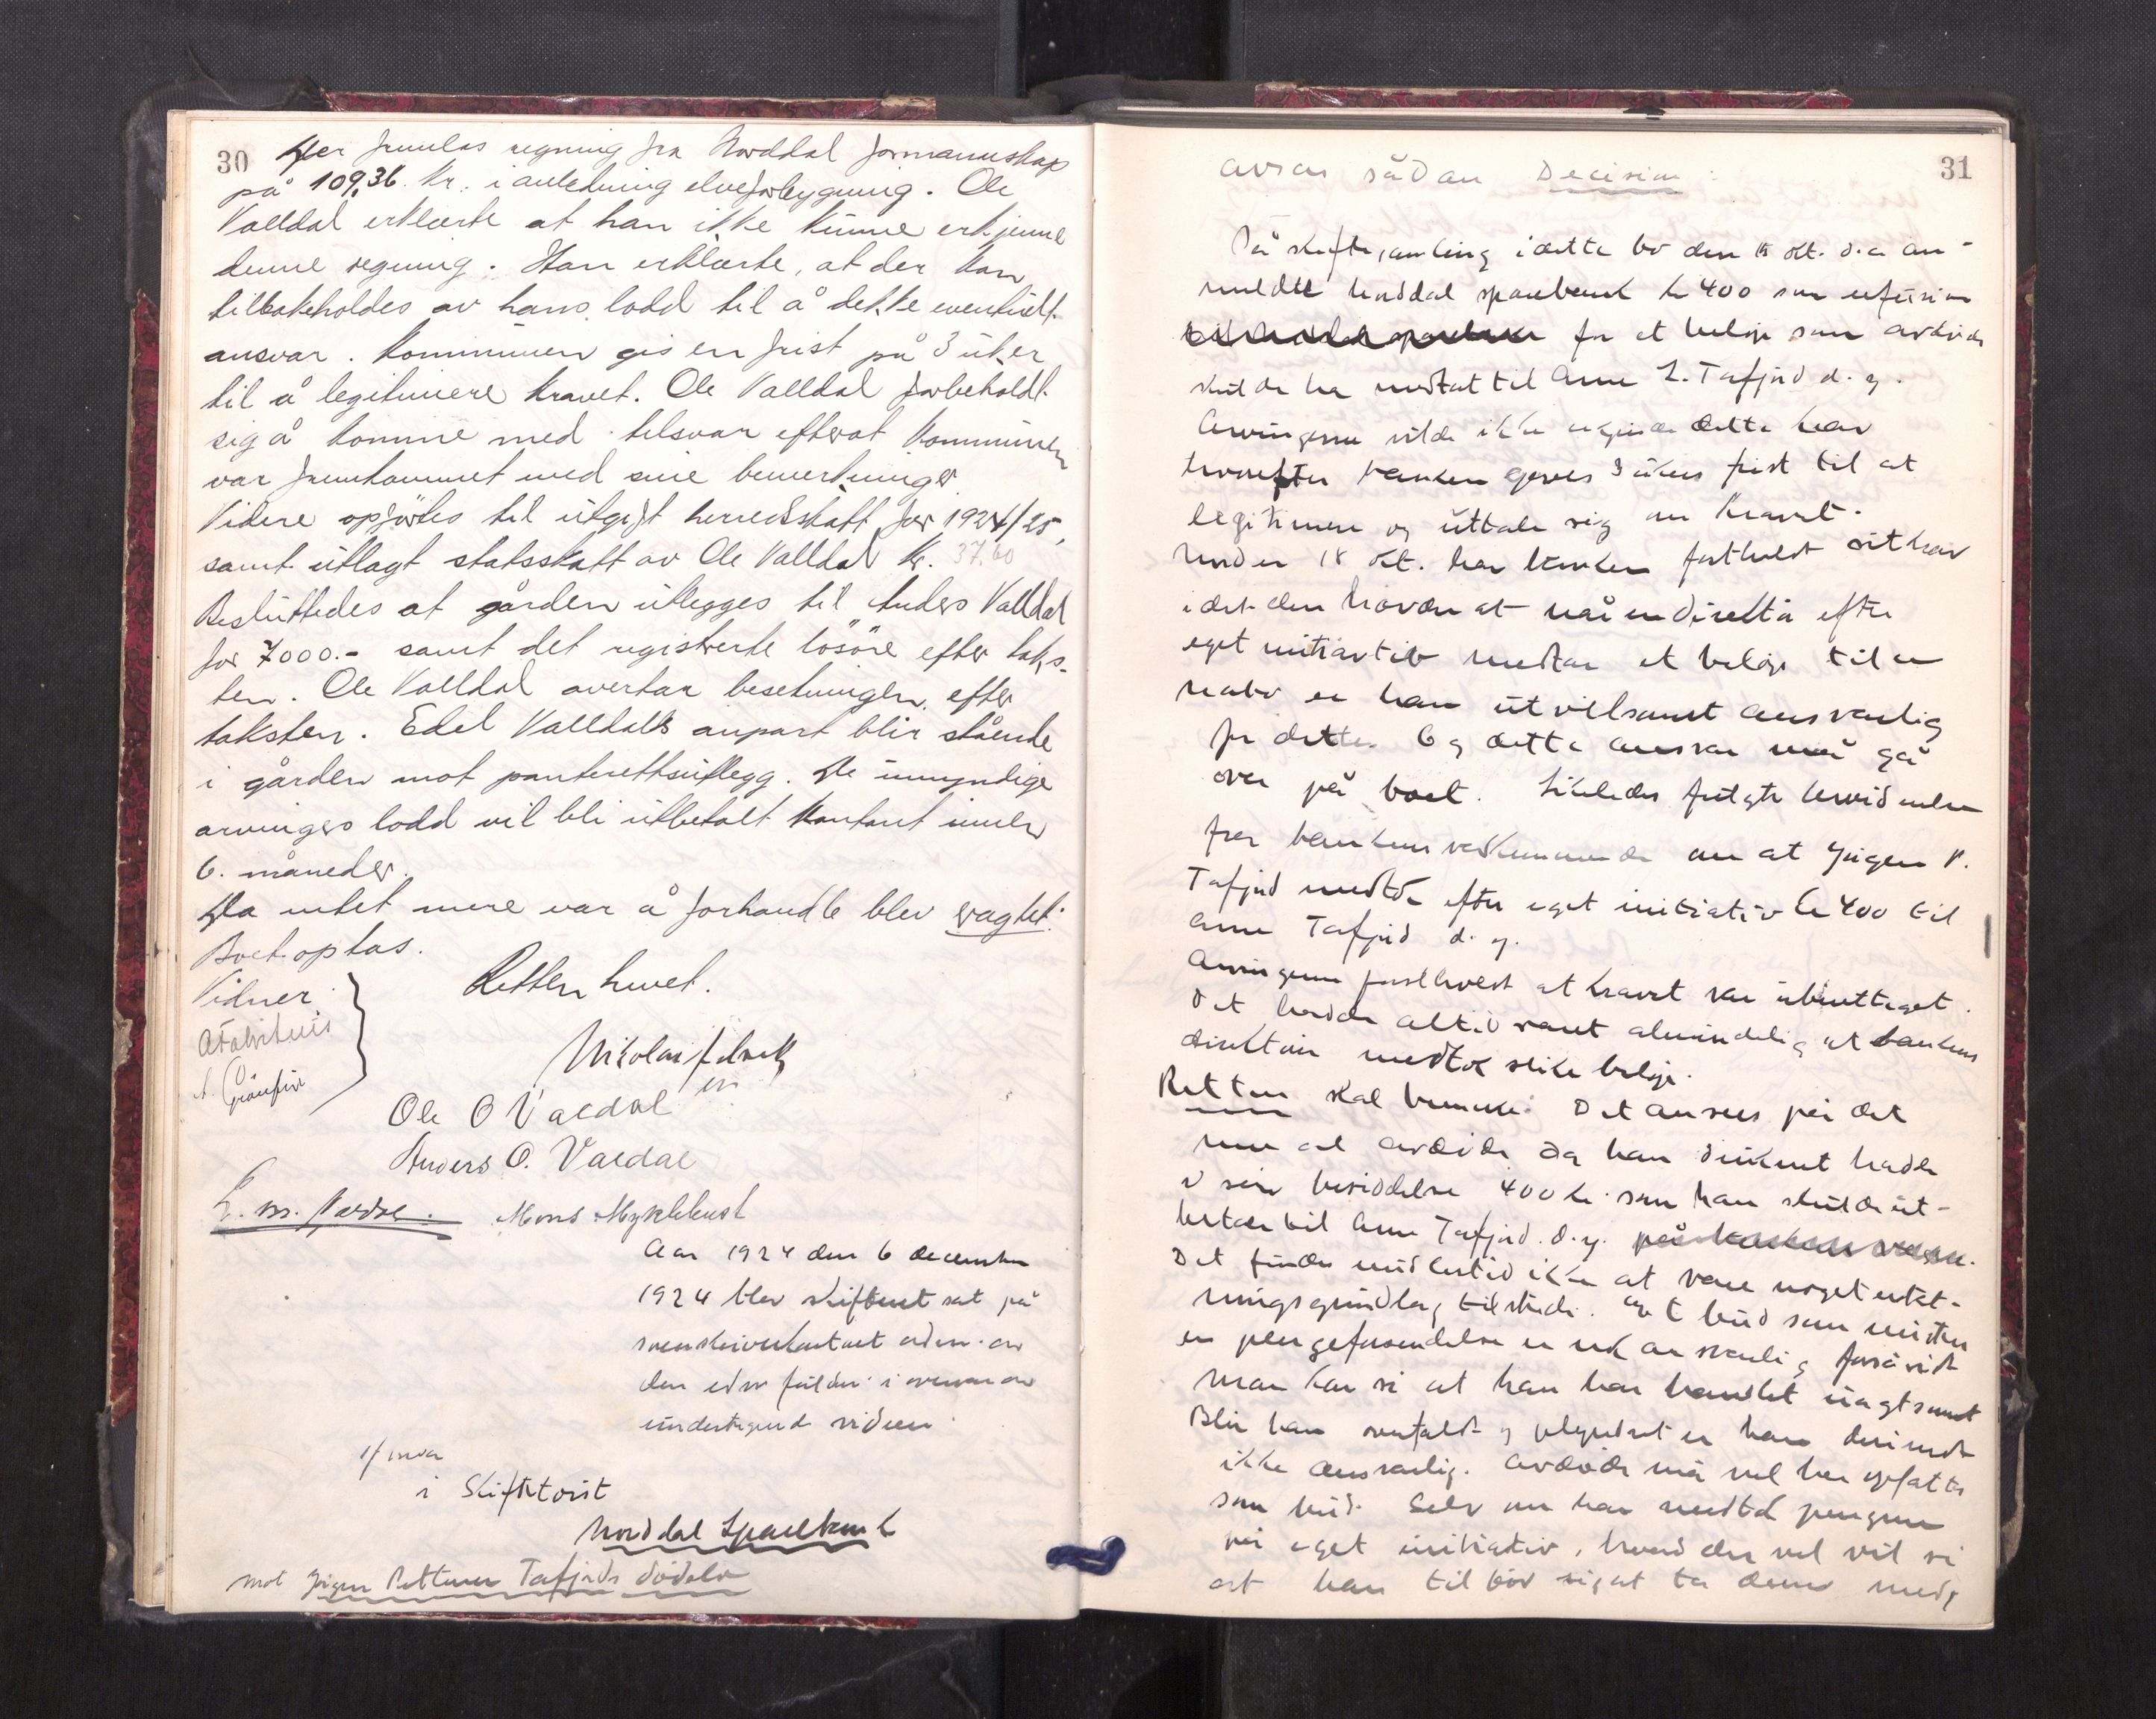 30
Her fremlas regning fra Norddal formannskap
på 109.36 Kr. i anledning elveforbygning. Ole
Valldal erklærte at han ikke kunne erkjenne
denne regning. Han erklærte, at der kan
tilbakeholdes av hans lodd til å dekke eventuelt
ansvar. Kommunen gis en frist på 3 uker
til å legitimere kravet. Ole Valldal forbeholdt
sig å komme med tilsvar efterat kommunen
var fremkommet med sine bemerkninger
Videre opførtes til utgift herredskatt for 1924/25,
samt utlagt statsskatt av Ole Valldal kr. 37.60
Besluttedes at gården utlegges til Anders Valldal
for 7000.- samt det registrerte løsøre efter taks-
ten. Ole Valldal overtar besetningen efter
taksten. Edel Valldals anpart blir stående
i gården mot panterettsutlegg. De umyndige
arvingers lodd vil bli utbetalt kontant innen
6. måneder.
Da intet mere var å forhandle blev vagtet:
Boet optas.
Vidner
Retten hevet.
Nikolai
Ole O Valdal
Anders O. Valdal
Mons Myklebust
Aar 1924 den 6 december
1924 blev skifteret sat på
sorenskriverkontoret adm. av
den edsv fuldm. i overvær av
undertegnede vidner
i Skiftetvist
Norddal Sparebank
mot Jørgen Pettersen Tafjords dødsbo
31
avsas sådan Decision:
På skiftesamling i dette bo den 15 okt. d.a. an-
meldte Norddal sparebank kr 400 som refusion
for et beløp som avdøde
skulde ha mottat til Anne L. Tafjord d. y.
Arvingerne vilde ikke erkjende dette krav
hvorefter banken gaves 3 ukers frist til at
legitimere og uttale sig om kravet.
Under 18 okt. har banken fastholdt sit krav
idet den hævder at når en direktør efter
eget initiativ mottar et beløp til en
er han utvilsomt ansvarlig
for dette. Og dette ansvar må gå
over på boet. Likeledes
fra bankens vedkommende om at Jørgen P.
Tafjord mottok efter eget initiativ kr 400 til
Anne Tafjord d. y.
Arvingerne fastholdt at kravet var uberettiget.
Det hadde altid været almindelig at bankens
direktør mottok slike beløp.
Retten skal bemerke: Det ansees på det
rene at avdøde da han druknet hadde
i sin besiddelse 400 kr. som han skulde ut-
betale til Anne Tafjord. d. y.
Det findes imidlertid ikke at være noget erstat-
ningsgrundlag tilstede. Et bud som mister
en pengeforsendelse er nok ansvarlig forsåvidt
man kan si at han har handlet uagtsomt
Blir han overfaldt og plyndret er han derimot
ikke ansvarlig. Avdøde må vel her opfattes
som bud. Selv om han mottok pengene
på eget initiativ, hvad der vel vil si
at han tilbød sig at ta dem med,